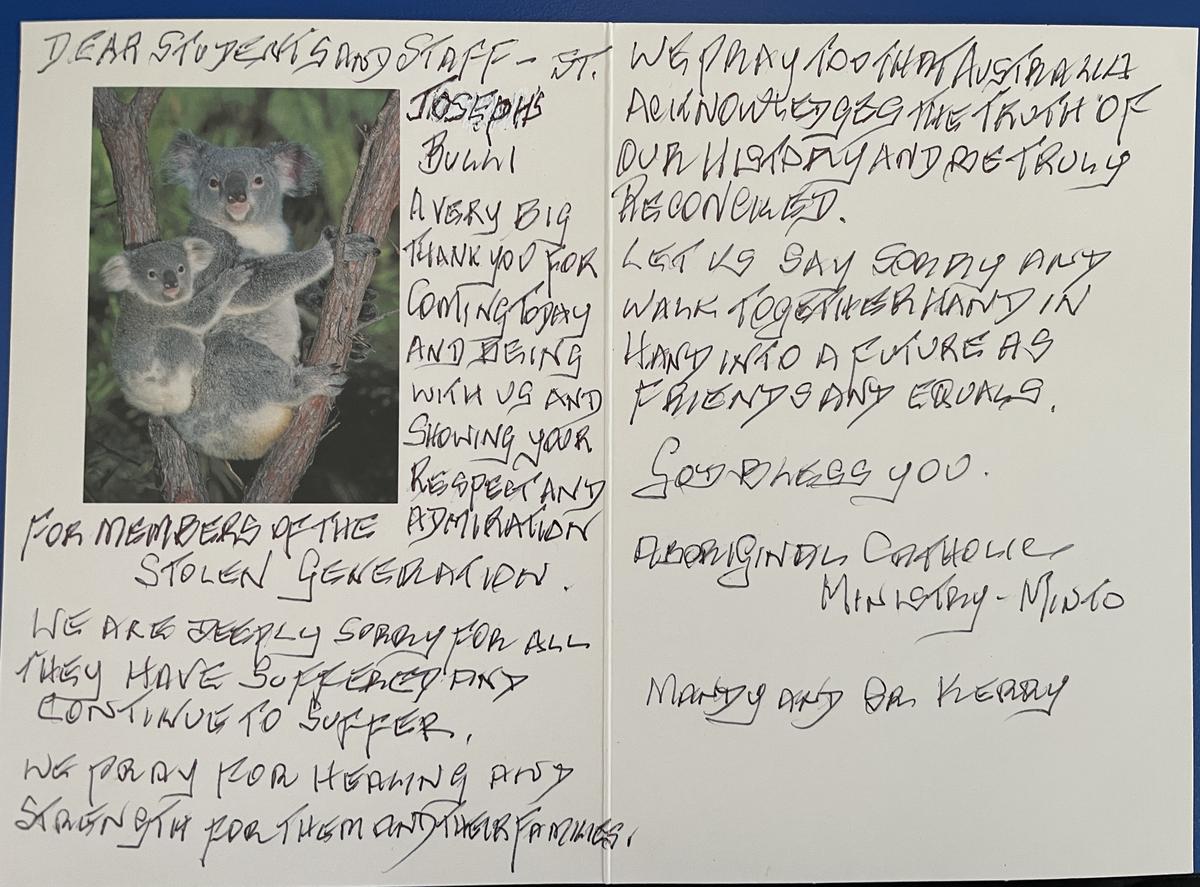 DEAR STUDENTS AND STAFF - ST.
JOSEPH'S
BULLI
A VERY BIG
THANK YOU FOR
COMING TODAY
AND BEING
WITH US AND
SHOWING YOUR
RESPECT AND
ADMIRATION
FOR MEMBERS OF THE
STOLEN GENERATION.
WE ARE DEEPLY SORRY FOR ALL
THEY HAVE SUFFERED AND
CONTINUE TO SUFFER.
WE PRAY FOR HEALING AND
STRENGTH FOR THEM AND THEIR FAMILIES.
WE PRAY TOO THAT AUSTRALIA
ACKNOWLEDGES THE TRUTH OF
OUR HISTORY AND BE TRULY
RECONCILED.
LET US SAY SORRY AND
WALK TOGETHER HAND IN
HAND INTO A FUTURE AS
FRIENDS AND EQUALS.
GOD BLESS YOU.
ABORIGINAL CATHOLIC
MINISTRY - MINTO
MANDY AND BR KERRY